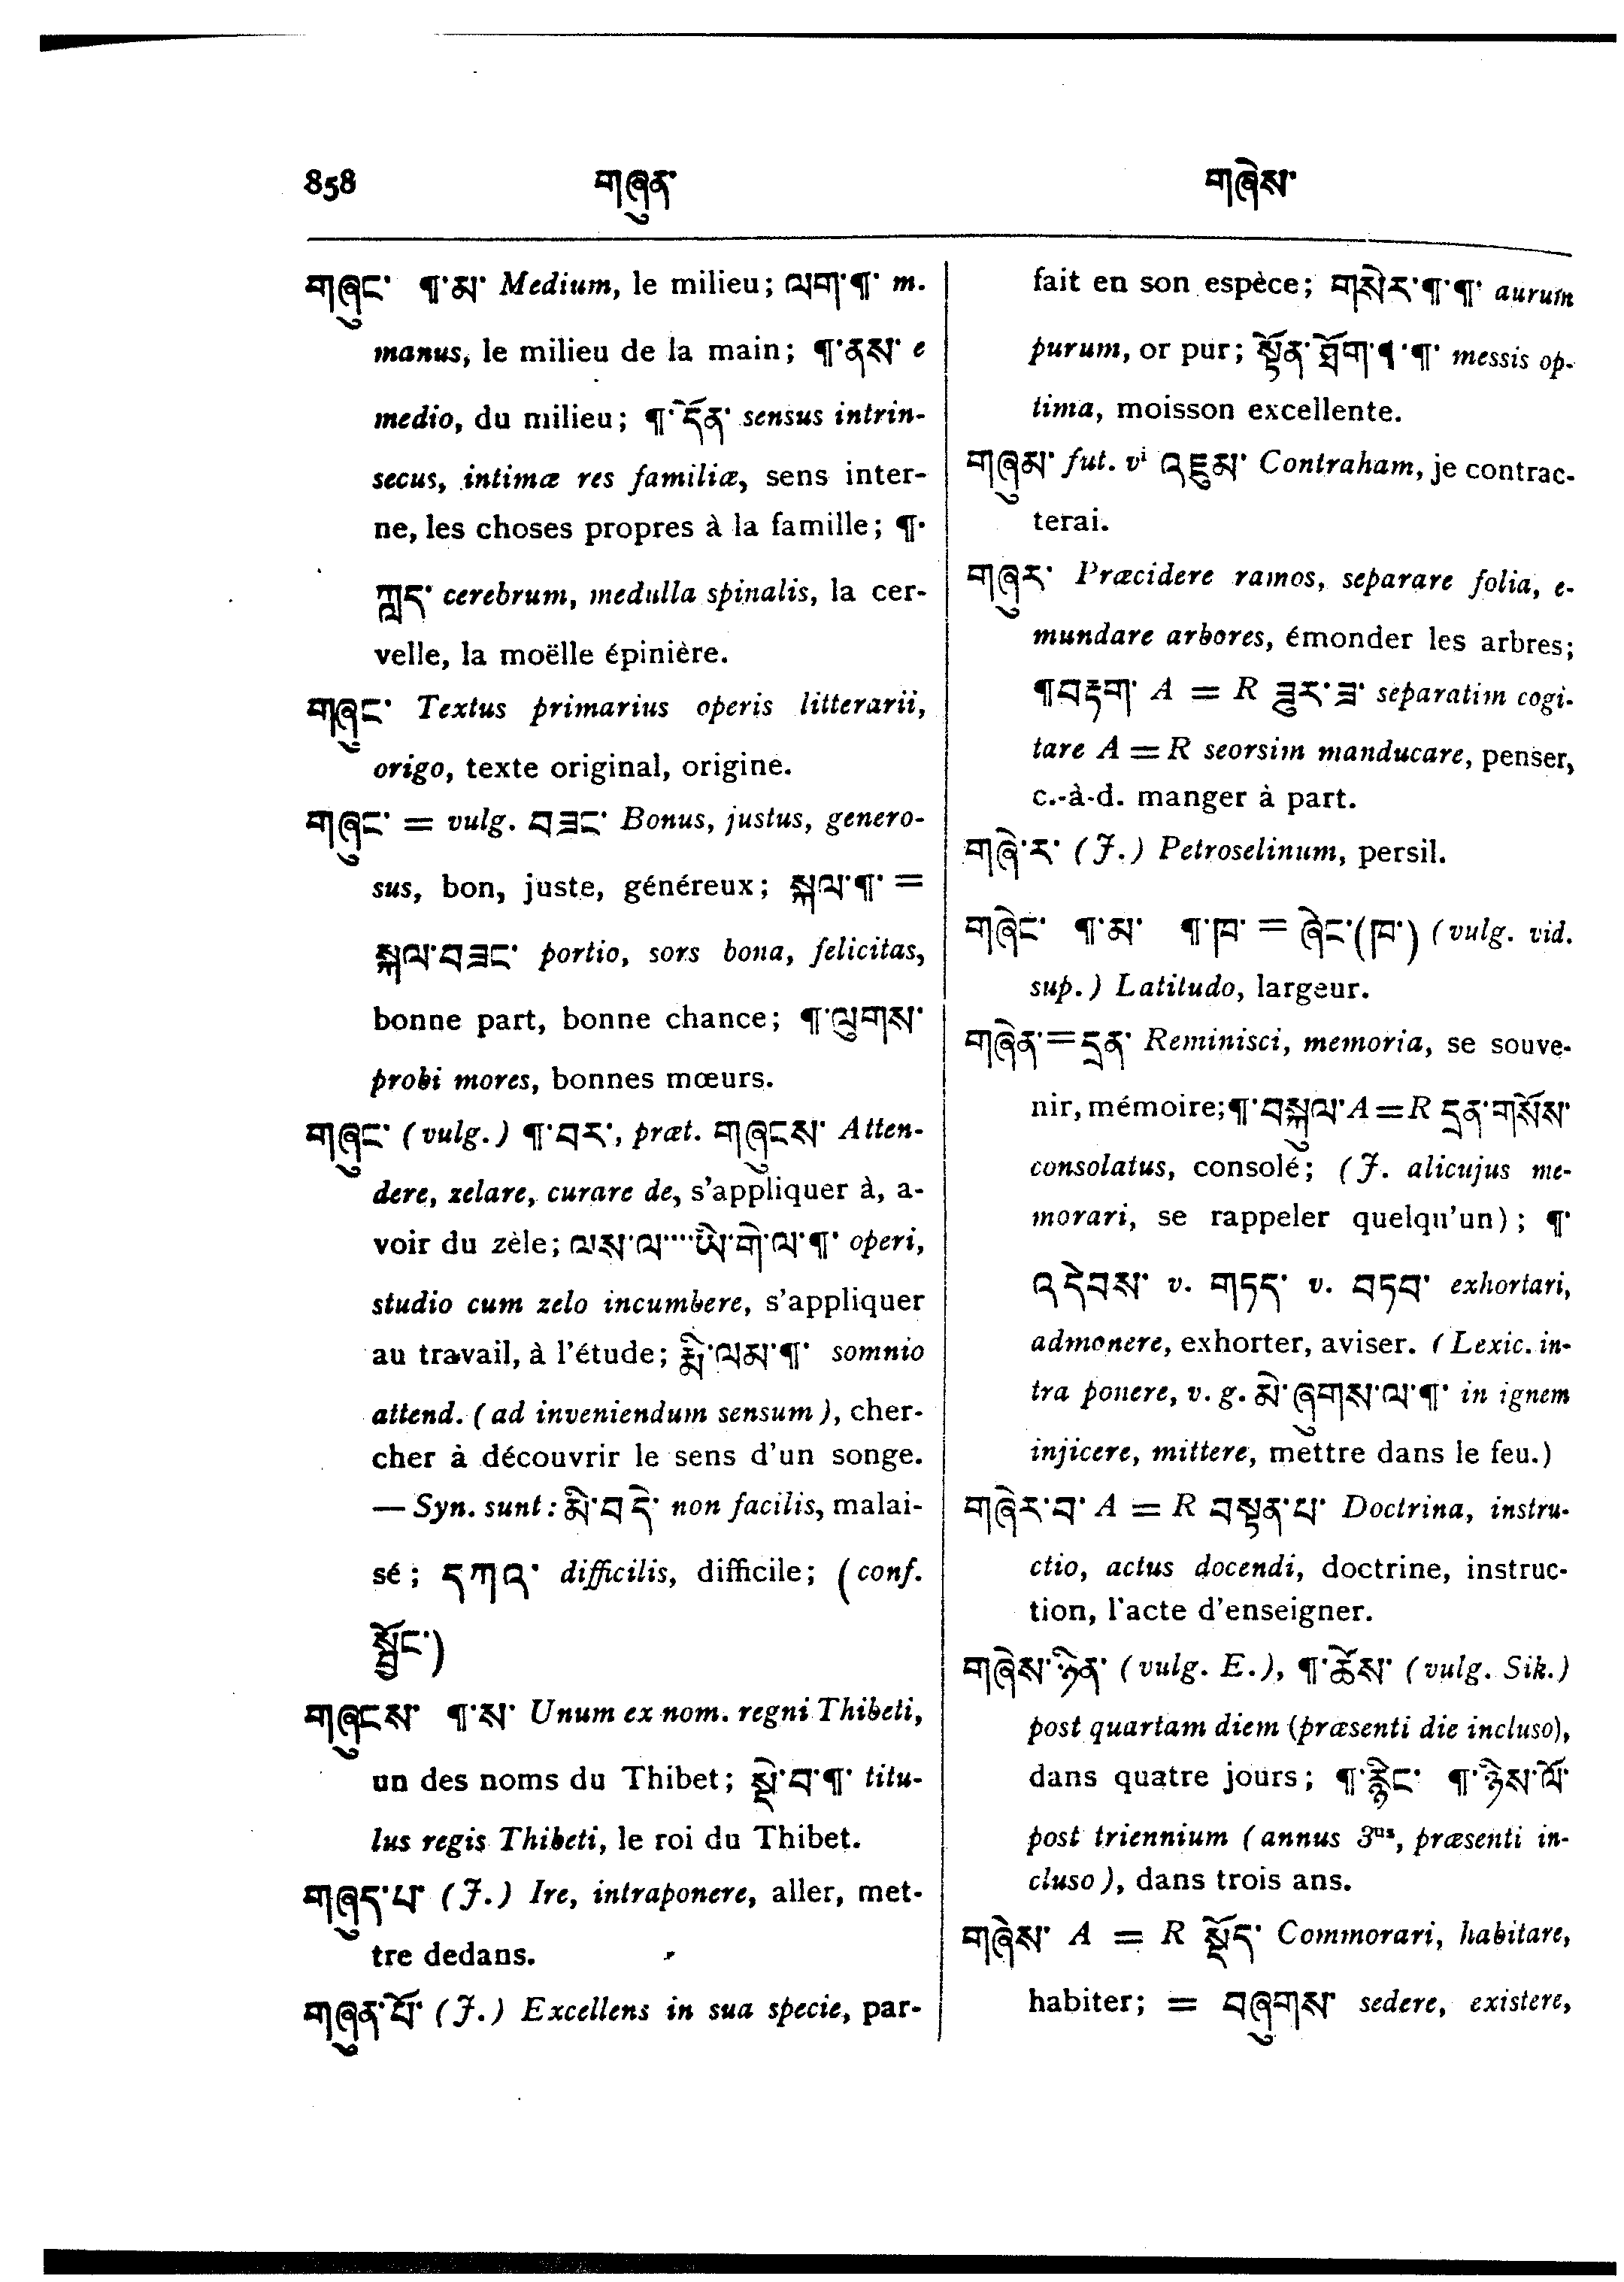 858 གཞུན་ གཞེས་
གཞུང་ ¶་མ་ Medium, le milieu; ལག་¶་ m.
manus, le milieu de la main; ¶་ནས་ e
medio, du milieu; ¶་དོན་ sensus intrin-
secus, intimæ res familiæ, sens inter-
ne, les choses propres à la famille; ¶་
ཀླད་ cerebrum, medulla spinalis, la cer-
velle, la moëlle épinière.
གཞུང་ Textus primarius operis litterarii,
origo, texte original, origine.
གཞུང་ = vulg. བཟང་ Bonus, justus, genero-
sus, bon, juste, généreux; སྐལ་¶་ =
སྐལ་བཟང་ portio, sors bona, felicitas,
bonne part, bonne chance; ¶་ལུགས་
probi mores, bonnes mœurs.
གཞུང་ (vulg.) ¶་བར་, præt. གཞུངས་ Atten-
dere, zelare, curare de, s'appliquer à, a-
voir du zèle; ལས་ལ་····ཡི་གེ་ལ་¶་ operi,
studio cum zelo incumbere, s'appliquer
au travail, à l'étude; རྨི་ལམ་¶་ somnio
attend. (ad inveniendum sensum), cher-
cher à découvrir le sens d'un songe.
— Syn. sunt: མི་བདེ་ non facilis, malai-
sé; དཀའ་ difficilis, difficile; (conf.
སྦྱོང་)
གཞུངས་ ¶་ས་ Unum ex nom. regni Thibeti,
un des noms du Thibet; སྡེ་བ་¶་ titu-
lus regis Thibeti, le roi du Thibet.
གཞུད་པ་ (J.) Ire, intraponere, aller, met-
tre dedans.
གཞུན་པོ་ (J.) Excellens in sua specie, par-
fait en son espèce; གསེར་¶་¶་ aurum
purum, or pur; སྟོན་ཐོག་¶་¶་ messis op-
tima, moisson excellente.
གཞུམ་ fut. vⁱ འཇུམ་ Contraham, je contrac-
terai.
གཞུར་ Præcidere ramos, separare folia, e-
mundare arbores, émonder les arbres;
¶བརྟག་ A = R ཟུར་ཟ་ separatim cogi-
tare A = R seorsim manducare, penser,
c.-à-d. manger à part.
གཞེ་ར་ (J.) Petroselinum, persil.
གཞེང་ ¶་མ་ ¶་ཁ་ = ཞེང་(ཁ་) (vulg. vid.
sup.) Latitudo, largeur.
གཞེན་=དྲན་ Reminisci, memoria, se souve-
nir, mémoire; ¶་བསྐུལ་ A = R དྲན་གསོས་
consolatus, consolé; (J. alicujus me-
morari, se rappeler quelqu'un); ¶་
འདེབས་ v. གཏད་ v. བཏབ་ exhortari,
admonere, exhorter, aviser. (Lexic. in-
tra ponere, v. g. མེ་ཞུགས་ལ་¶་ in ignem
injicere, mittere, mettre dans le feu.)
གཞེར་བ་ A = R བསྟན་པ་ Doctrina, instru-
ctio, actus docendi, doctrine, instruc-
tion, l'acte d'enseigner.
གཞེས་ཉིན་ (vulg. E.), ¶་ཚོས་ (vulg. Sik.)
post quartam diem (præsenti die incluso),
dans quatre jours; ¶་རྙིང་ ¶་ཉེས་ལོ་
post triennium (annus 3ᵘˢ, præsenti in-
cluso), dans trois ans.
གཞེས་ A = R སྡོད་ Commorari, habitare,
habiter; = བཞུགས་ sedere, existere,